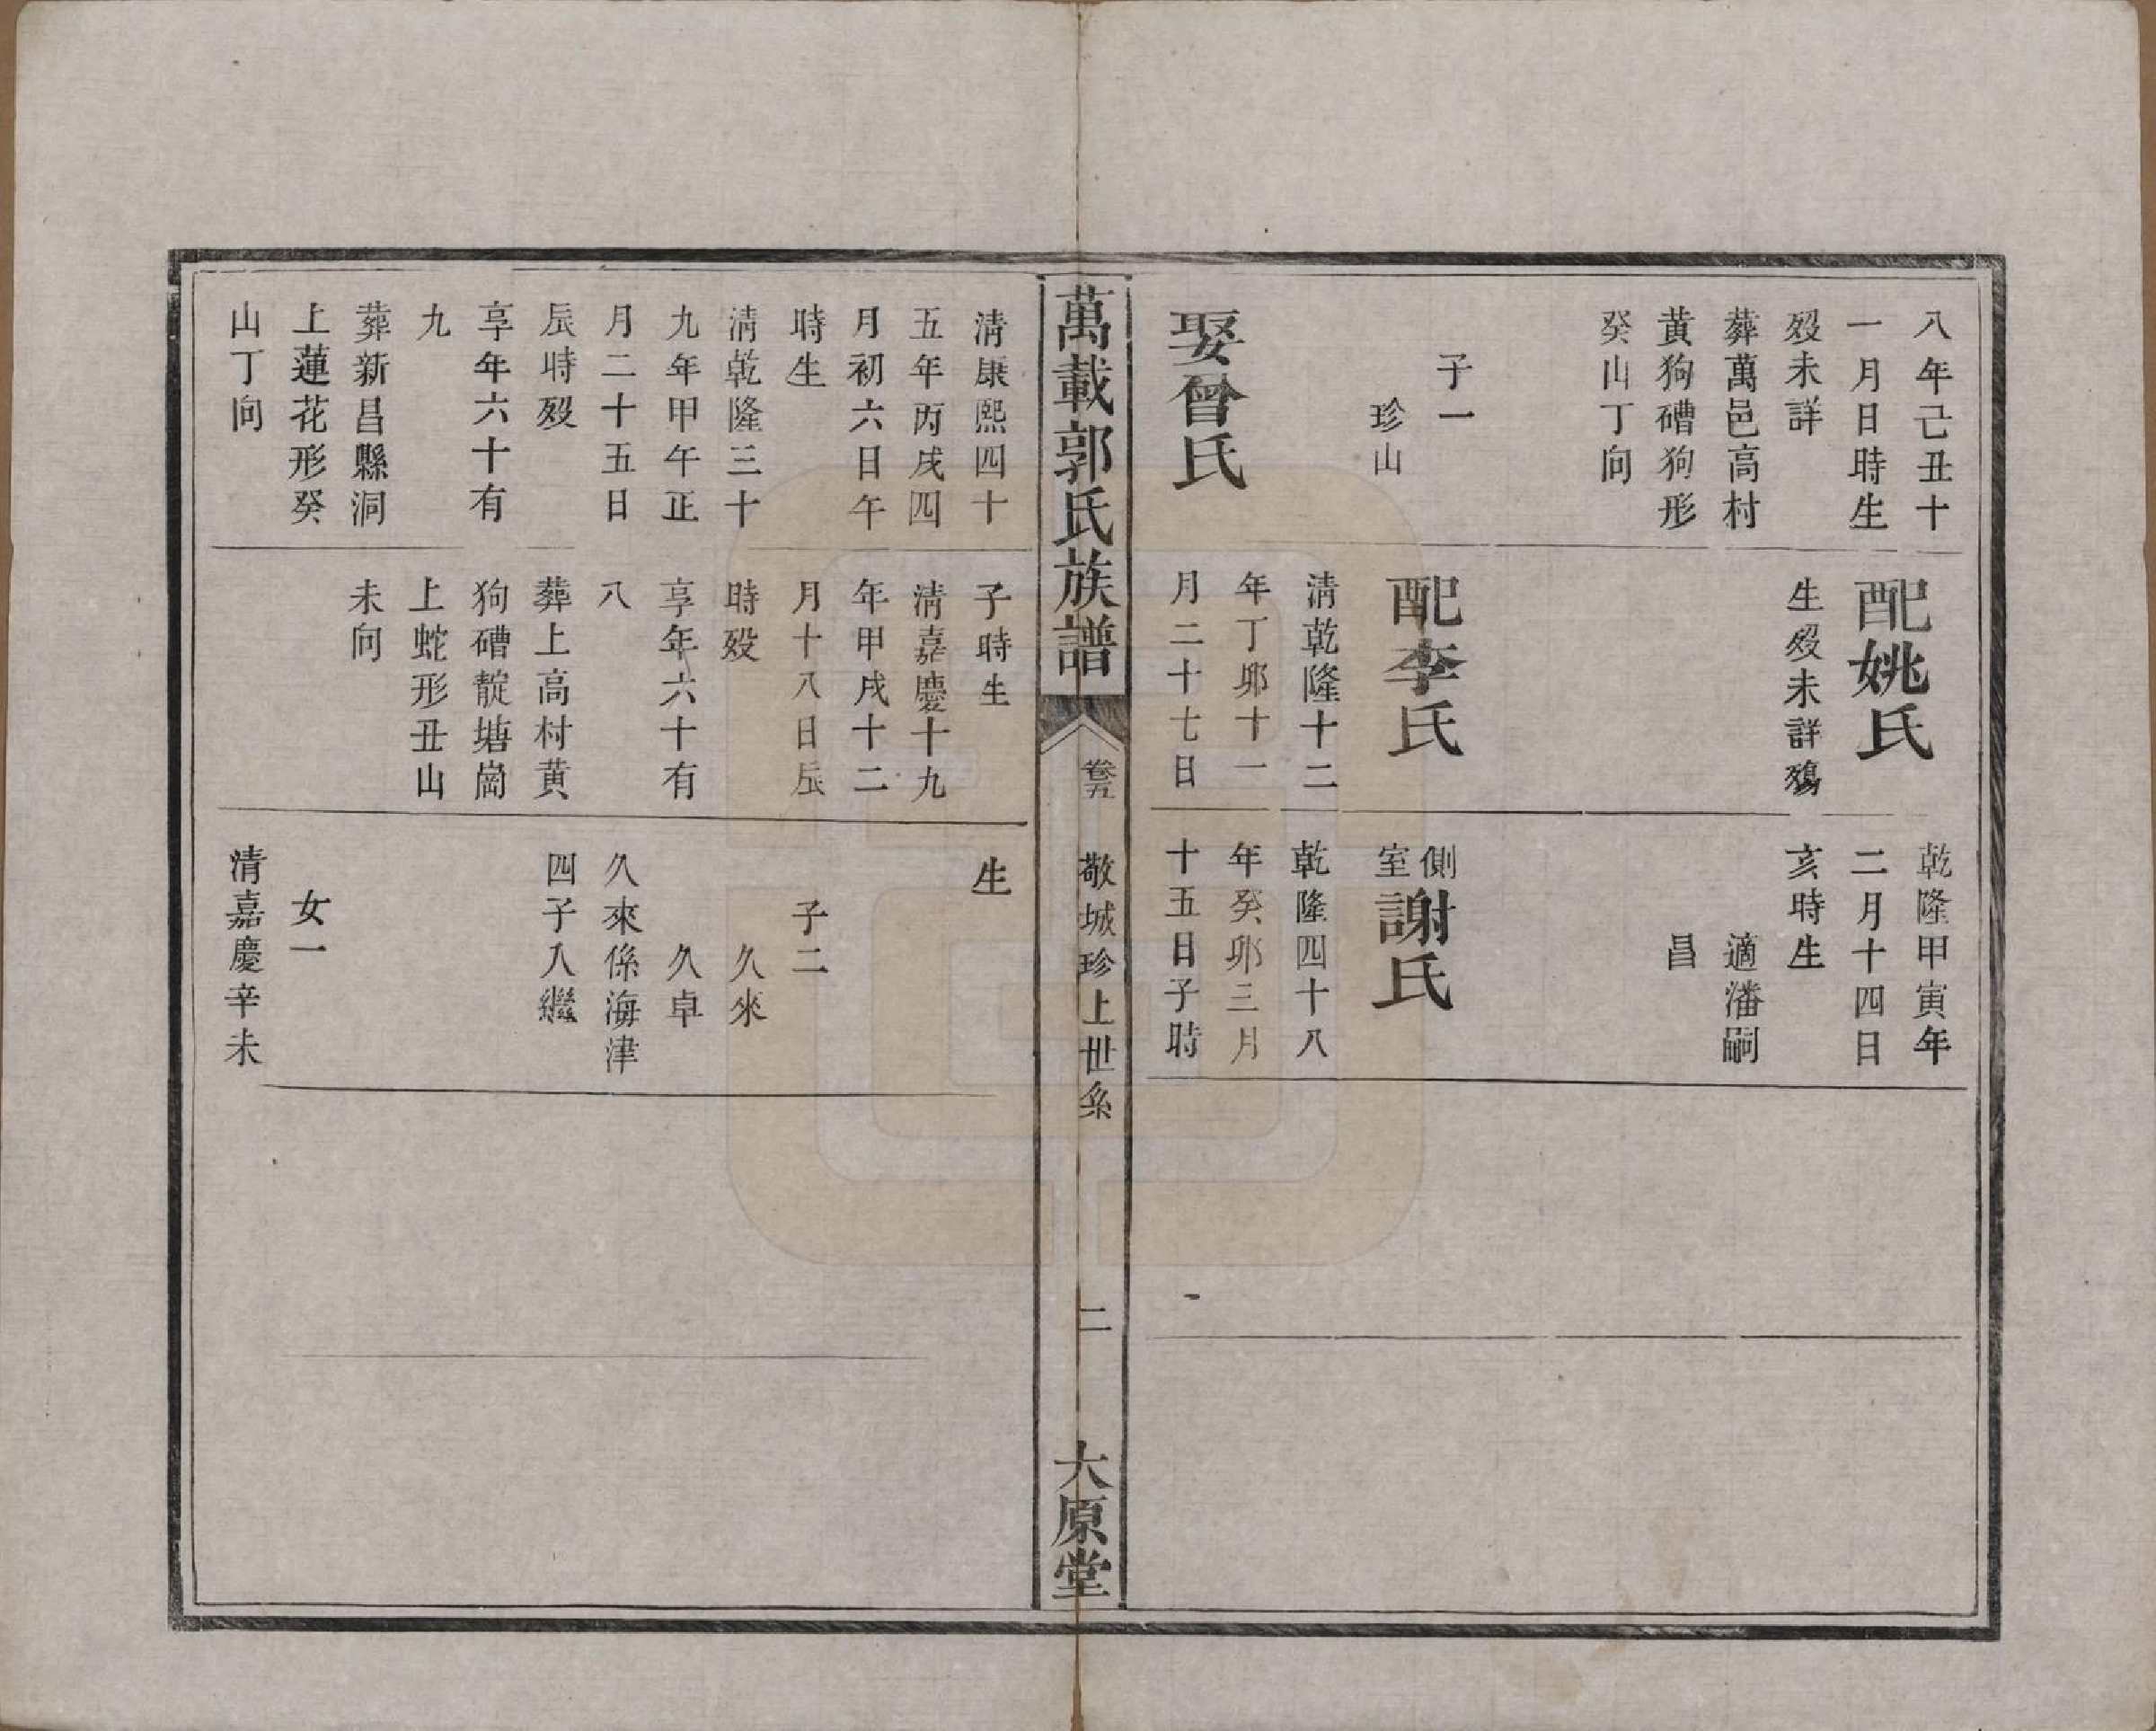 八年己丑十
一月日時生
歿未詳
葬萬邑高村
黄狗磏狗形
癸山丁向
子一
珍山
娶曾氏
配姚氏
生歿未詳殤
配李氏
清乾隆十二
年丁卯十一
月二十七日
乾隆甲寅年
二月十四日
亥時生
適潘嗣
昌
側室謝氏
乾隆四十八
年癸卯三月
十五日子時
萬載郭氏族譜
卷五
敬城珍上世系
二
大原堂
清康熙四十
五年丙戌四
月初六日午
時生
清乾隆三十
九年甲午正
月二十五日
辰時歿
享年六十有
九
葬新昌縣洞
上蓮花形癸
山丁向
子時生
清嘉慶十九
年甲戌十二
月十八日辰
時歿
享年六十有
八
葬上高村黄
狗磏靛塘崗
上蛇形丑山
未向
生
子二
久來
久卓
久來係海津
四子入繼
女一
清嘉慶辛未